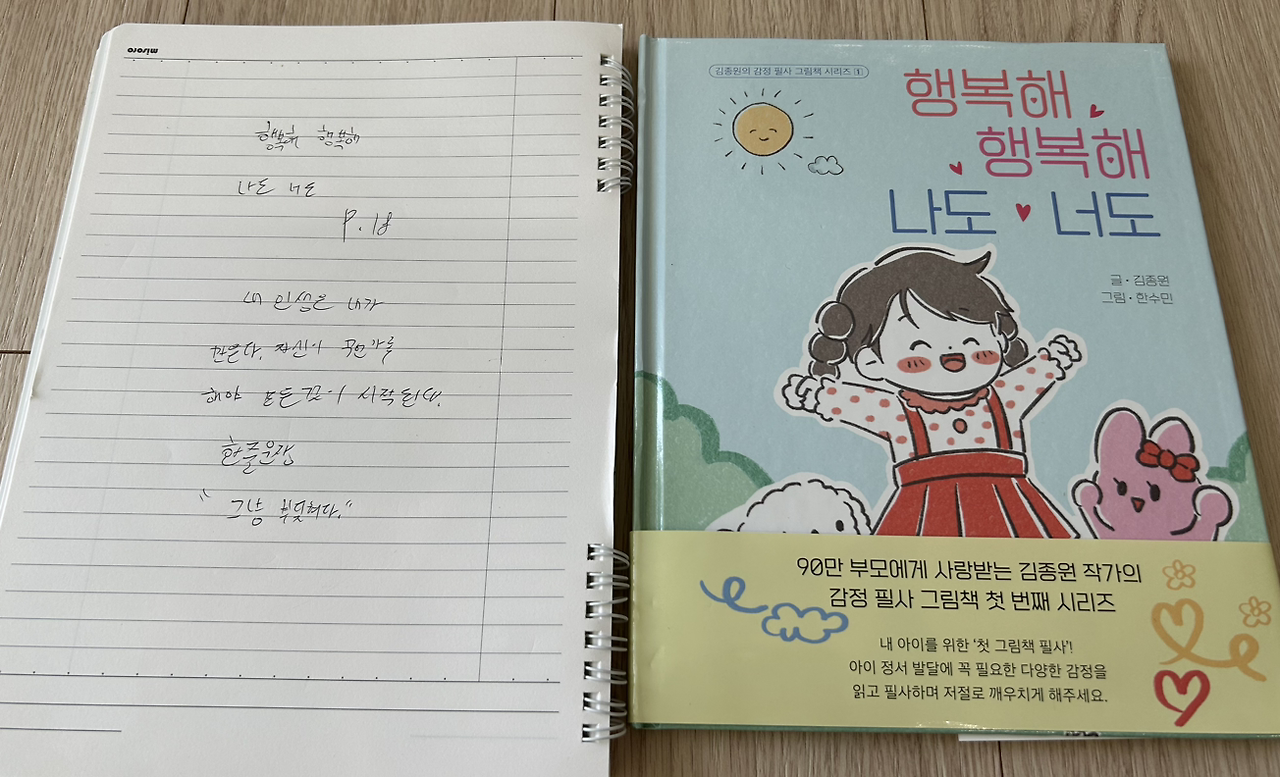 misoro
행복해 행복해
나도 너도
P.18
내 인생은 내가
만든다. 자신이 무언가를
해야 모든것이 시작된다.
한줄문장
"그냥 부딪히다."
김종원의 감정 필사 그림책 시리즈 1
행복해
행복해
나도 너도
글·김종원
그림·한수민
90만 부모에게 사랑받는 김종원 작가의
감정 필사 그림책 첫 번째 시리즈
내 아이를 위한 '첫 그림책 필사'!
아이 정서 발달에 꼭 필요한 다양한 감정을
읽고 필사하며 저절로 깨우치게 해주세요.